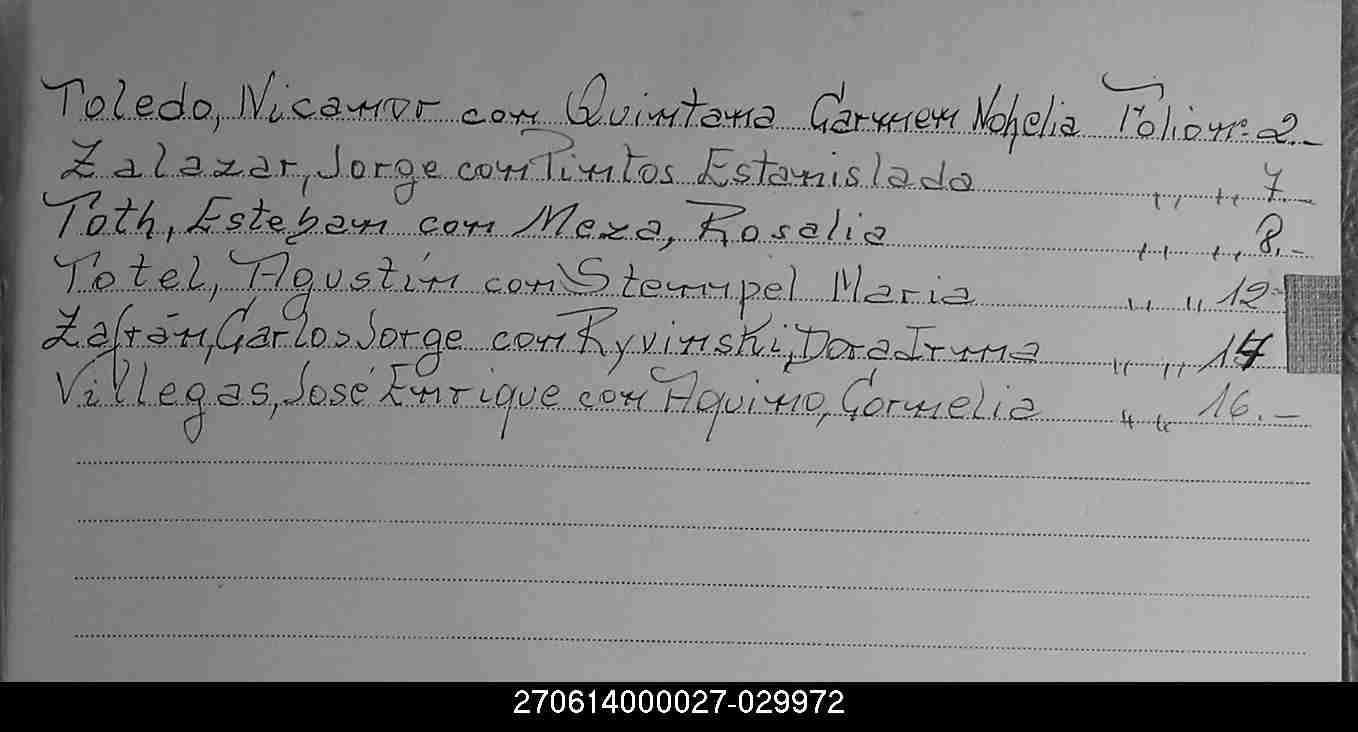 Toledo, Nicanor con Quintana Carmen Nohelia Folio nº 2.-
Zalazar, Jorge con Pintos Estanislada " " 7.-
Toth, Esteban con Meza, Rosalia " " 8.-
Totel, Agustín con Stempel Maria " " 12-
Zafrán, Carlos Jorge con Ryvinski, Dora Irma " " 14
Villegas, José Enrique con Aquino, Cornelia " " 16.-
270614000027-029972